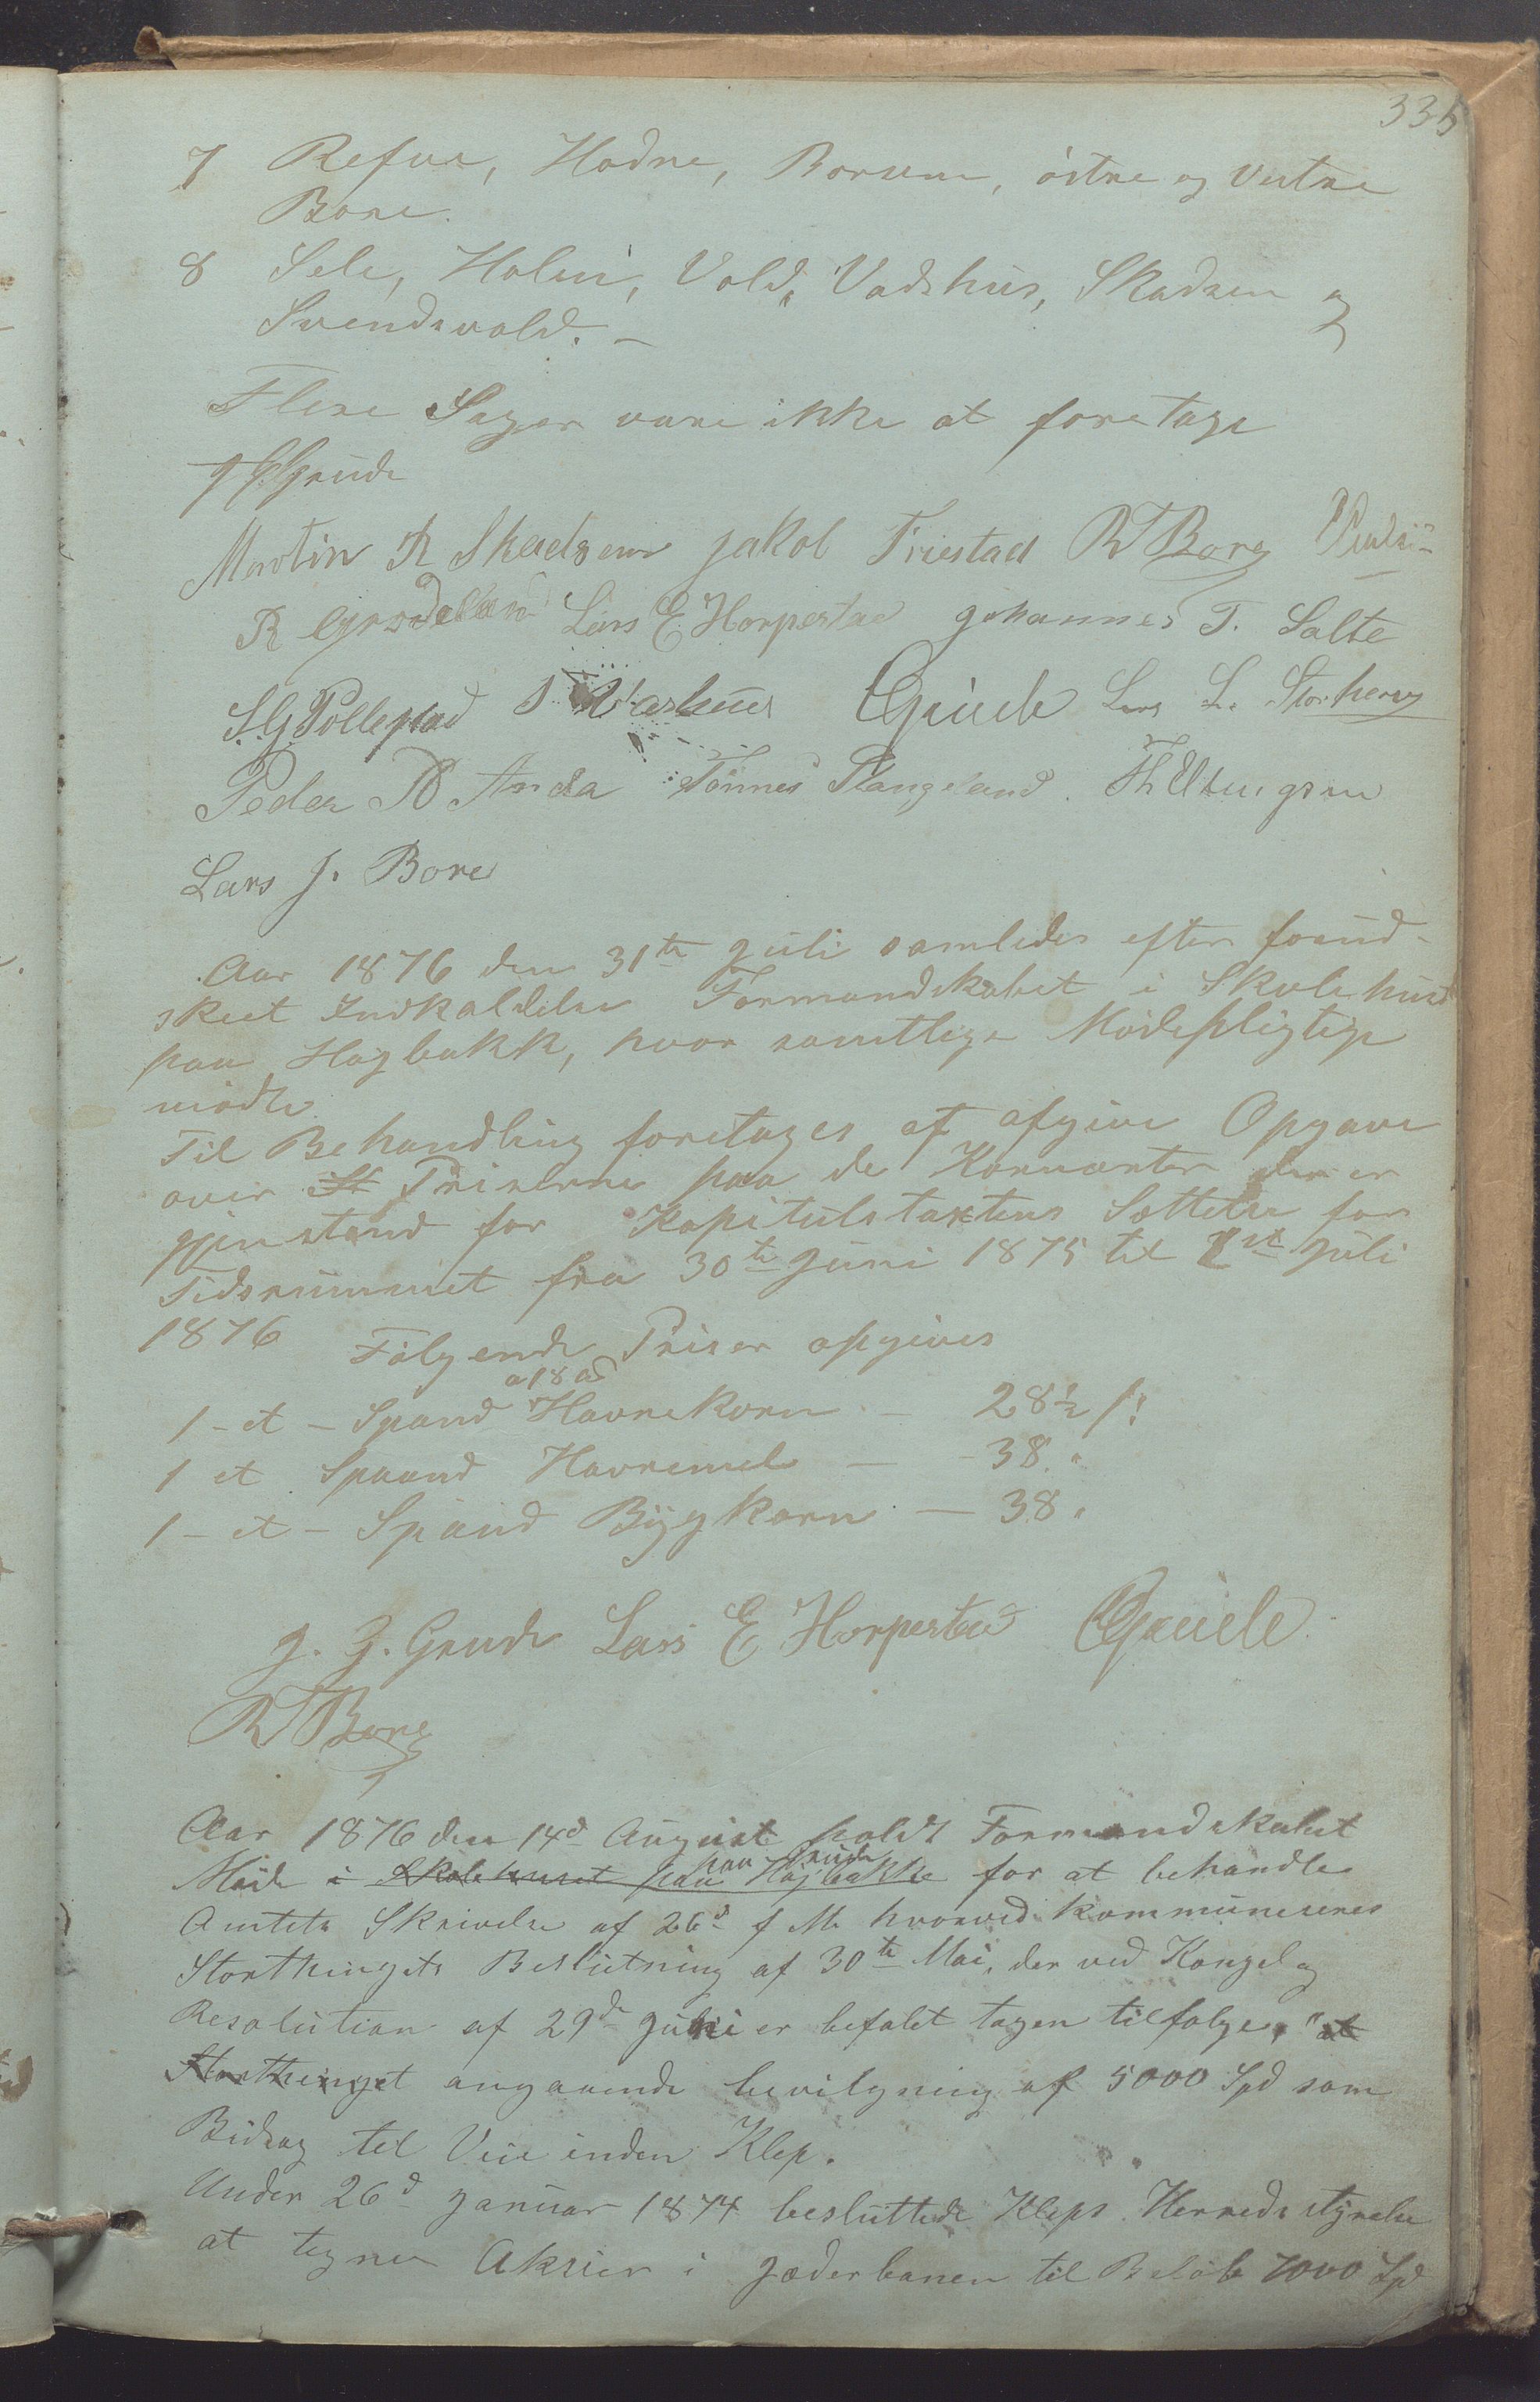 335
7 Refve, Hodne, Borsum, østre og Vestre
Bore.
8 Sele, Holen, Vold, Vadshus, Skadsem og
Svendsvold. –
Flere Sager vare ikke at foretage
J G Grude
Martin R Skadsem Jakob Friestad R T Bore
R Grødeland Lars E. Horpestad Johannes T. Salte
S. G. Pollestad Grude Lars L. Storhoug
Peder P Anda Tønnes Stangeland. Th Ellingsen
Lars J. Bore
Aar 1876 den 31te Juli samledes efter forud-
skeet Indkaldelse Formandskabet i Skolehuset
paa Høgbakk, hvor samtlige Mødepligtige
mødte.
Til Behandling foretages at afgive Opgave
over St Priserne paa de Kornvarter der er
gjenstand for Kapitulstaxtens Sættelse for
Tidsrummet fra 30te Juni 1875 til 1ste Juli
1876 Følgende Priser opgives
a 18
1 - et - Spand Havrekorn – 28½ s:
1 et Spaand Havremel — - 38. "
1 - et - Spand Bygkorn — 38 "
J. G. Grude Lars E Horpestad Grude
R T Bore
Aar 1876 den 14d August holdt Formandskabet
paa Grude
Møde i Skolehuset paa Højbakke for at behandle
Amtets Skrivelse af 26d f M. hvorved kommuniseres
Storthingets Beslutning af 30te Mai, der ved Kongel og
Resolution af 29de Juni er befalet tagen tilfølge, "at
Storthinget angaaende bevilgning af 5000 Spd som
Bidrag til Veie inden Klep.
Under 26d Januar 1874 besluttede Kleps Herredsstyrelse
at tegne Aksier i Jæderbanen til Beløb 7000 Spd